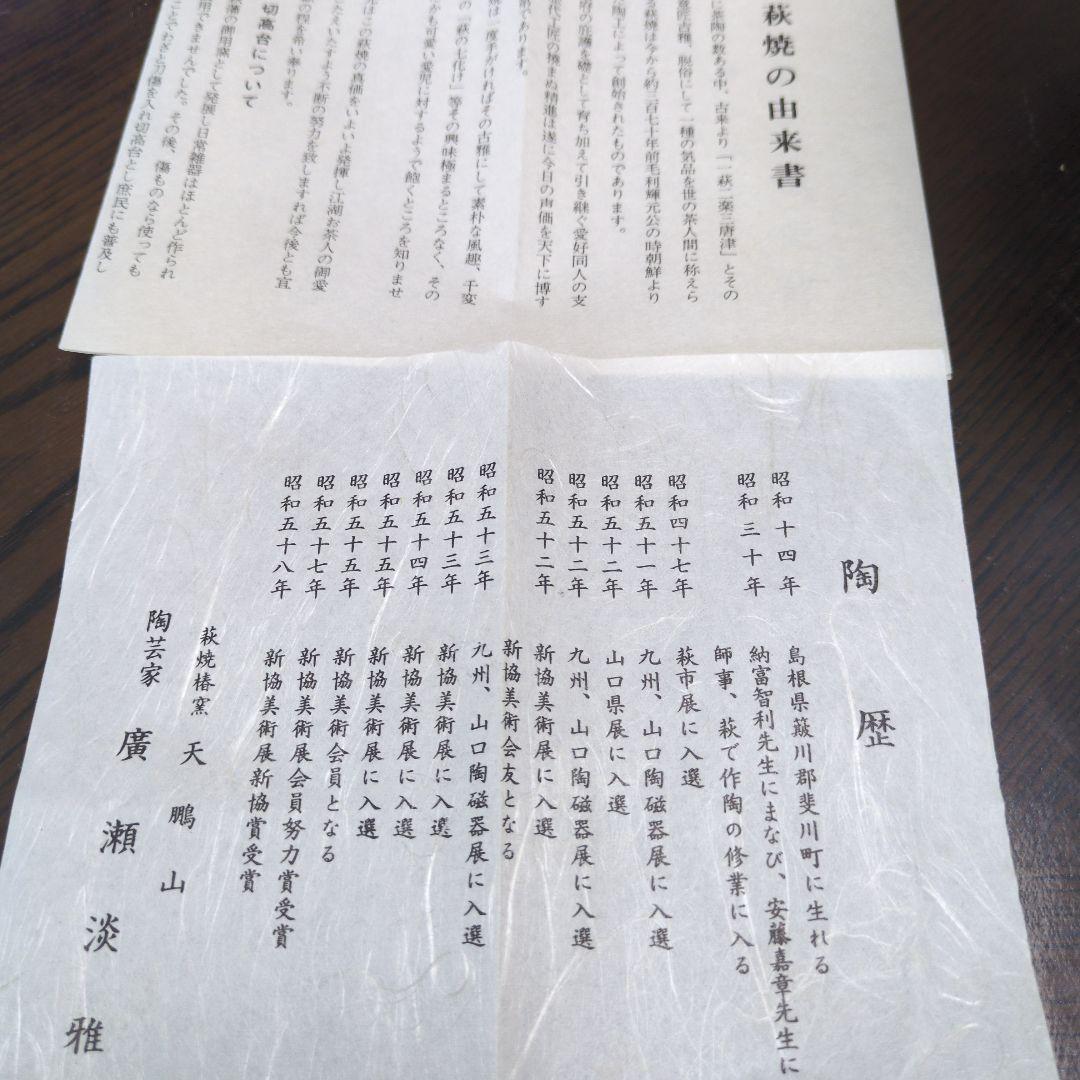 萩焼の由来書
に茶陶の数ある中、古来より「一萩二楽三唐津」とその
雅、脱俗にして一種の気品を世の茶人間に称えら
る萩焼は今から約三百七十年前毛利輝元公の時朝鮮より
陶工によって創始されたものであります。
府の庇護を礎として育ち加えて引き継ぐ愛好同人の支
工匠の撓まぬ精進は遂に今日の声価を天下に博す
であります。
は一度手がければその古雅にして素朴な風趣、千変
の「萩の七化け」等その興味極まるところなく、その
かも可愛い愛児に対するようで飽くところを知りませ
はこの萩焼の真価をいよいよ発揮し江湖お茶人の御愛
たえいたすよう不断の努力を致しますれば今後とも宜
の程を希い奉ります。
切高台について
藩の御用窯として発展し日常雑器はほとんど作られ
用できませんでした。その後、傷ものなら使っても
ことでわざと可傷を入れ切高台とし庶民にも普及し
陶歴
昭和十四年 島根県簸川郡斐川町に生れる
昭和三十年 納富智利先生にまなび、安藤嘉章先生に
師事、萩で作陶の修業に入る
昭和四十七年 萩市展に入選
昭和五十一年 九州、山口陶磁器展に入選
昭和五十二年 山口県展に入選
昭和五十二年 九州、山口陶磁器展に入選
昭和五十二年 新協美術展に入選
新協美術会友となる
昭和五十三年 九州、山口陶磁器展に入選
昭和五十三年 新協美術展に入選
昭和五十四年 新協美術展に入選
昭和五十五年 新協美術展に入選
昭和五十五年 新協美術会員となる
昭和五十七年 新協美術展会員努力賞受賞
昭和五十八年 新協美術展新協賞受賞
萩焼椿窯 天鵬山
陶芸家 廣瀬淡雅